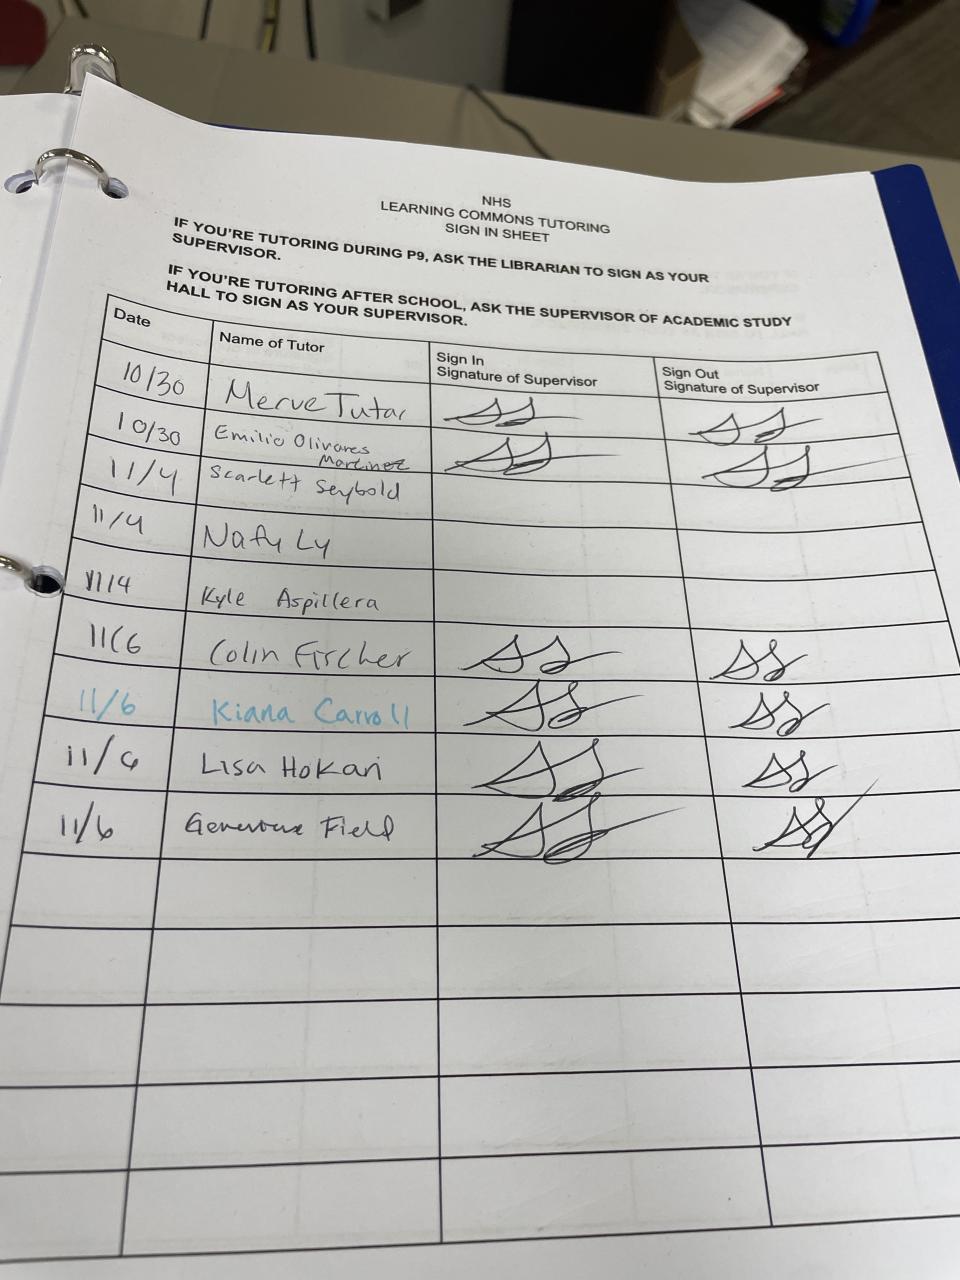 NHS
LEARNING COMMONS TUTORING
SIGN IN SHEET
IF YOU'RE TUTORING DURING P9, ASK THE LIBRARIAN TO SIGN AS YOUR
SUPERVISOR.
IF YOU'RE TUTORING AFTER SCHOOL, ASK THE SUPERVISOR OF ACADEMIC STUDY
HALL TO SIGN AS YOUR SUPERVISOR.
Date Name of Tutor Sign In Sign Out
Signature of Supervisor Signature of Supervisor
10/30 Merve Tutar
10/30 Emilio Olivares
Martinez
11/4 Scarlett Seybold
11/4 Nafy Ly
11/4 Kyle Aspillera
11/6 Colin Fircher
11/6 Kiana Carroll
11/6 Lisa Hokari
11/6 Field